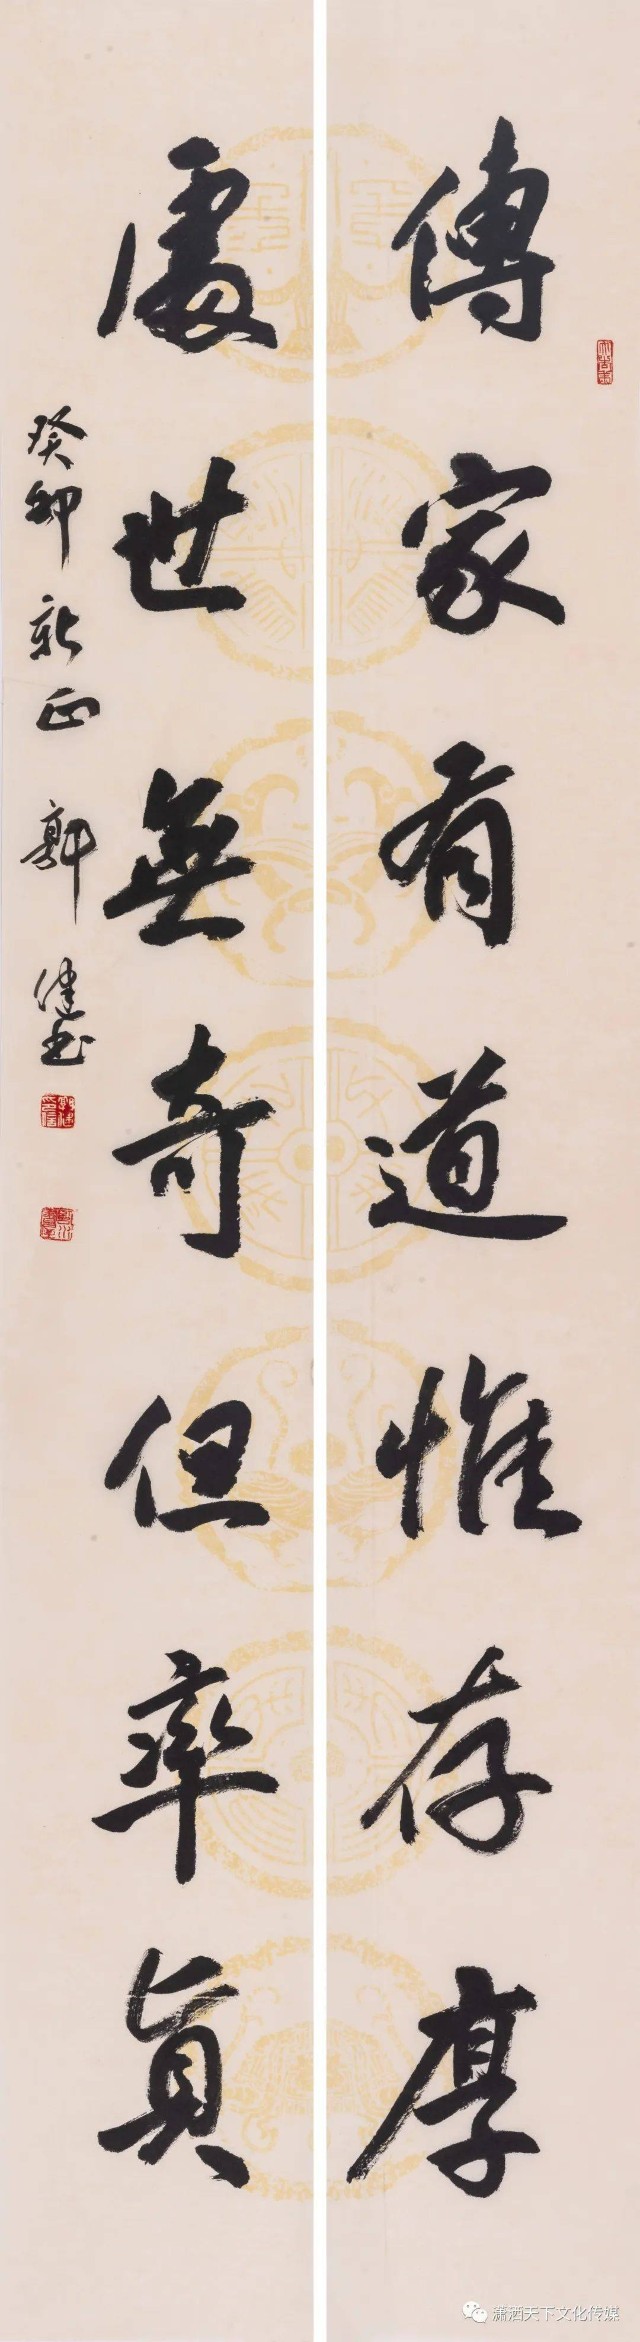 傳家有道惟存厚
處世無奇但率真
癸卯新正 郭健书
潇洒天下文化传媒